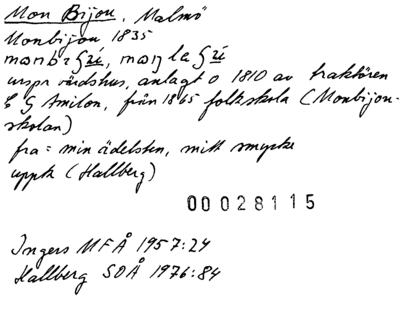 Mon Bijou, Malmö
Monbijou 1835
urspr värdshus, anlagt o 1810 av traktören
E G Amilon, från 1865 folkskola (Monbijou-
skolan)
fra = min ädelsten, mitt smycke
uppk (Hallberg)
00028115
Ingers MFÅ 1957:24
Hallberg SOÅ 1976:84